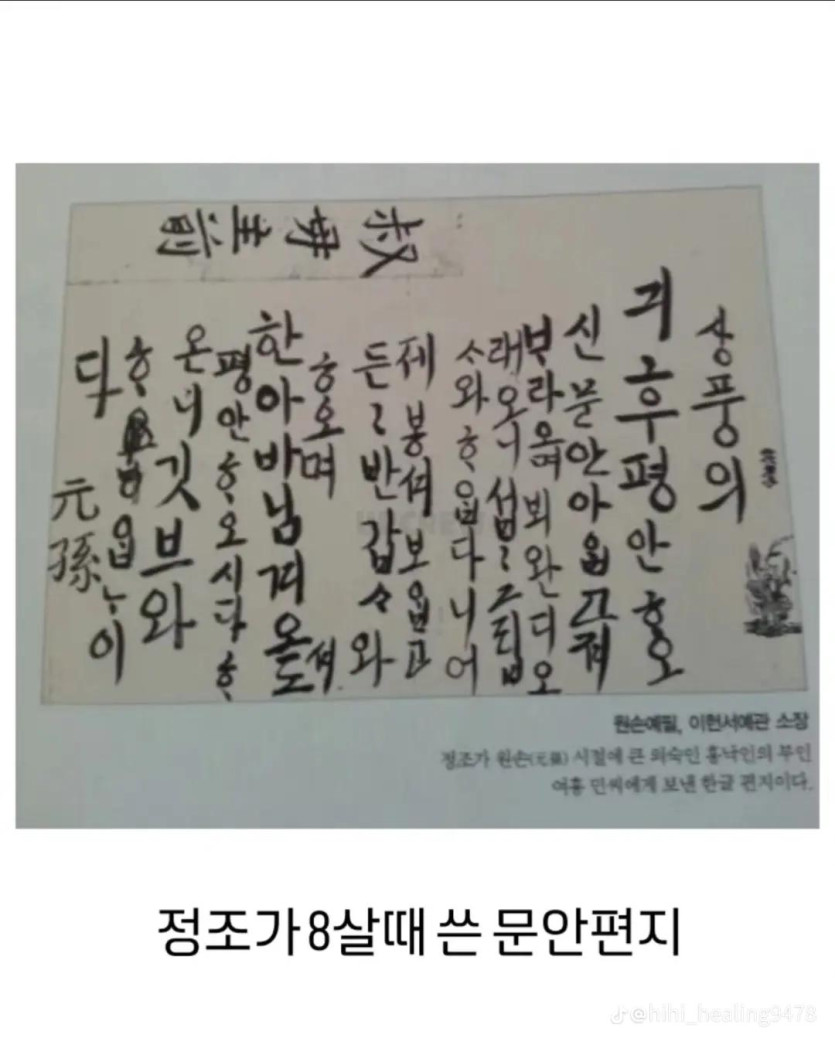 叔母主前
상풍의
긔후평안ᄒᆞ오
신문안아ᄋᆞᆸ고져
ᄇᆞ라오며 뵈완디오
래오니 섭〻 그립
ᄉᆞ와 ᄒᆞᄋᆞᆸ다니 어
제 봉셔 보ᄋᆞᆸ고
든〻 반갑ᄉᆞ와
ᄒᆞ오며
한아바님 겨오셔도
평안ᄒᆞ오시다 ᄒᆞ
온니 깃브와
ᄒᆞᄋᆞᆸᄂᆞ이
다 元孫
원손예필, 이헌서예관 소장
정조가 원손(元孫) 시절에 큰 외숙인 홍낙인의 부인
여흥 민씨에게 보낸 한글 편지이다.
정조가 8살때 쓴 문안편지
@hihi_healing9478